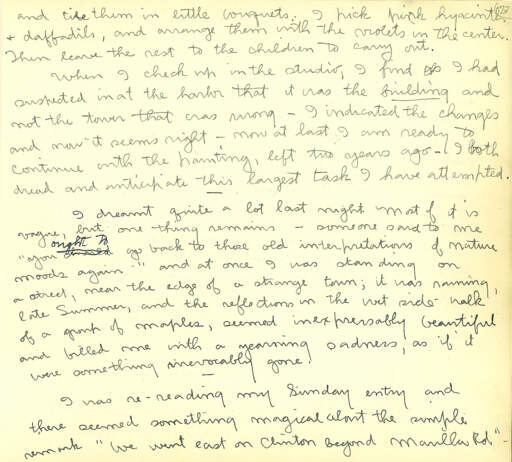 and tie them in little bouquets. I pick pink hyacinths
+ daffodils, and arrange them with the violets in the center.
Then leave the rest to the children to carry out.
When I check up in the studio, I find as I had
suspected in at the harbor that it was the building and
not the tower that was wrong - I indicated the changes
and now it seems right - now at last I am ready to
continue with the painting, left two years ago - I both
dread and anticipate this largest task I have attempted.
I dreamt quite a lot last night most of it is
vague, but one thing remains - someone said to me
"you ought to go back to those old interpretations of nature
moods again" and at once I was standing on
a street, near the edge of a strange town; it was raining,
late Summer, and the reflections in the wet side-walk
of a group of maples, seemed inexpressably beautiful
and filled me with a yearning sadness, as if it
were something irrevocably gone.
I was re-reading my Sunday entry and
there seemed something magical about the simple
remark "We went east on Clinton beyond Maulla Rd" -